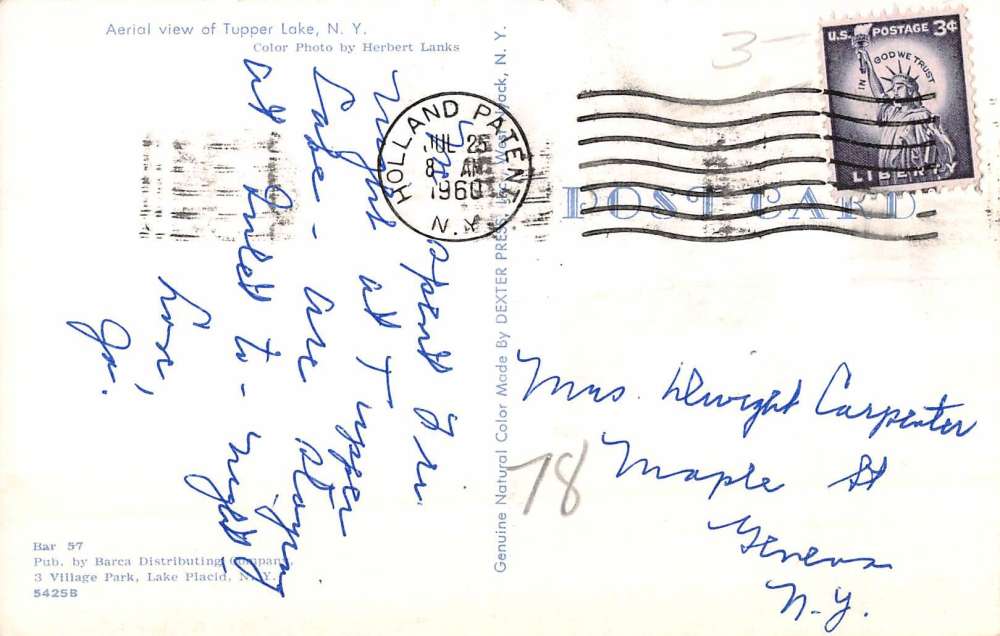 Aerial view of Tupper Lake, N. Y.
Color Photo by Herbert Lanks
spent Fri.
night at Tupper
Lake - are staying
at Inlet to-night
Love,
Bar 57
Pub. by Barca Distributing Company.
3 Village Park, Lake Placid, N. Y.
5425B
Genuine Natural Color Made By DEXTER PRESS, Inc. West Nyack, N. Y.
HOLLAND PATENT
JUL 25
8 AM
1960
N.Y.
3-
U.S. POSTAGE 3¢
IN GOD WE TRUST
LIBERTY
POST CARD
Mrs. Dwight Carpenter
Maple St
Geneva
N.Y.
78